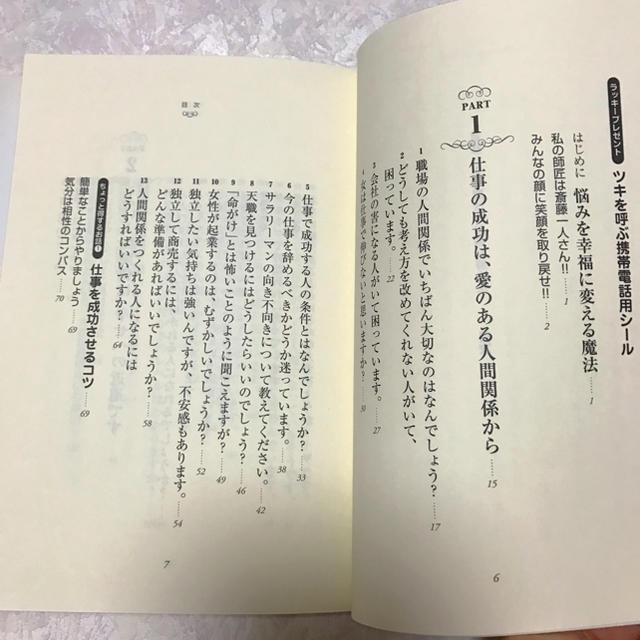 ラッキープレゼント ツキを呼ぶ携帯電話用シール
はじめに 悩みを幸福に変える魔法……1
私の師匠は斎藤一人さん!!……1
みんなの顔に笑顔を取り戻せ!!……2
PART
1
仕事の成功は、愛のある人間関係から……15
1 職場の人間関係でいちばん大切なのはなんでしょう?……17
2 どうしても考え方を改めてくれない人がいて、
困っています。……22
3 会社の害になる人がいて困っています。……27
4 女は仕事で伸びないと思いますか?……30
6
目次
5 仕事で成功する人の条件とはなんでしょうか?……33
6 今の仕事を辞めるべきかどうか迷っています。……38
7 サラリーマンの向き不向きについて教えてください。……42
8 天職を見つけるにはどうしたらいいのでしょう?……46
9 「命がけ」とは怖いことのように聞こえますが?……49
10 女性が起業するのは、むずかしいでしょうか?……52
11 独立したい気持ちは強いんですが、不安感もあります。……54
12 独立して商売するには、
どんな準備があればいいでしょうか?……58
13 人間関係をつくれる人になるには
どうすればいいですか?……64
ちょっと得するお話 仕事を成功させるコツ……69
簡単なことからやりましょう……69
気分は相性のコンパス……70
7